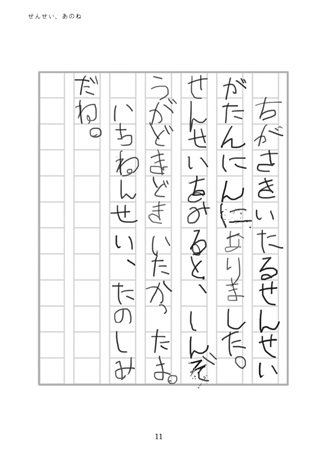 せんせい、あのね
ちがさきいたるせんせい
がたんにんにありました。
せんせいおみると、しんぞ
うがどきどきいたかったよ。
いちねんせい、たのしみ
だね。
11